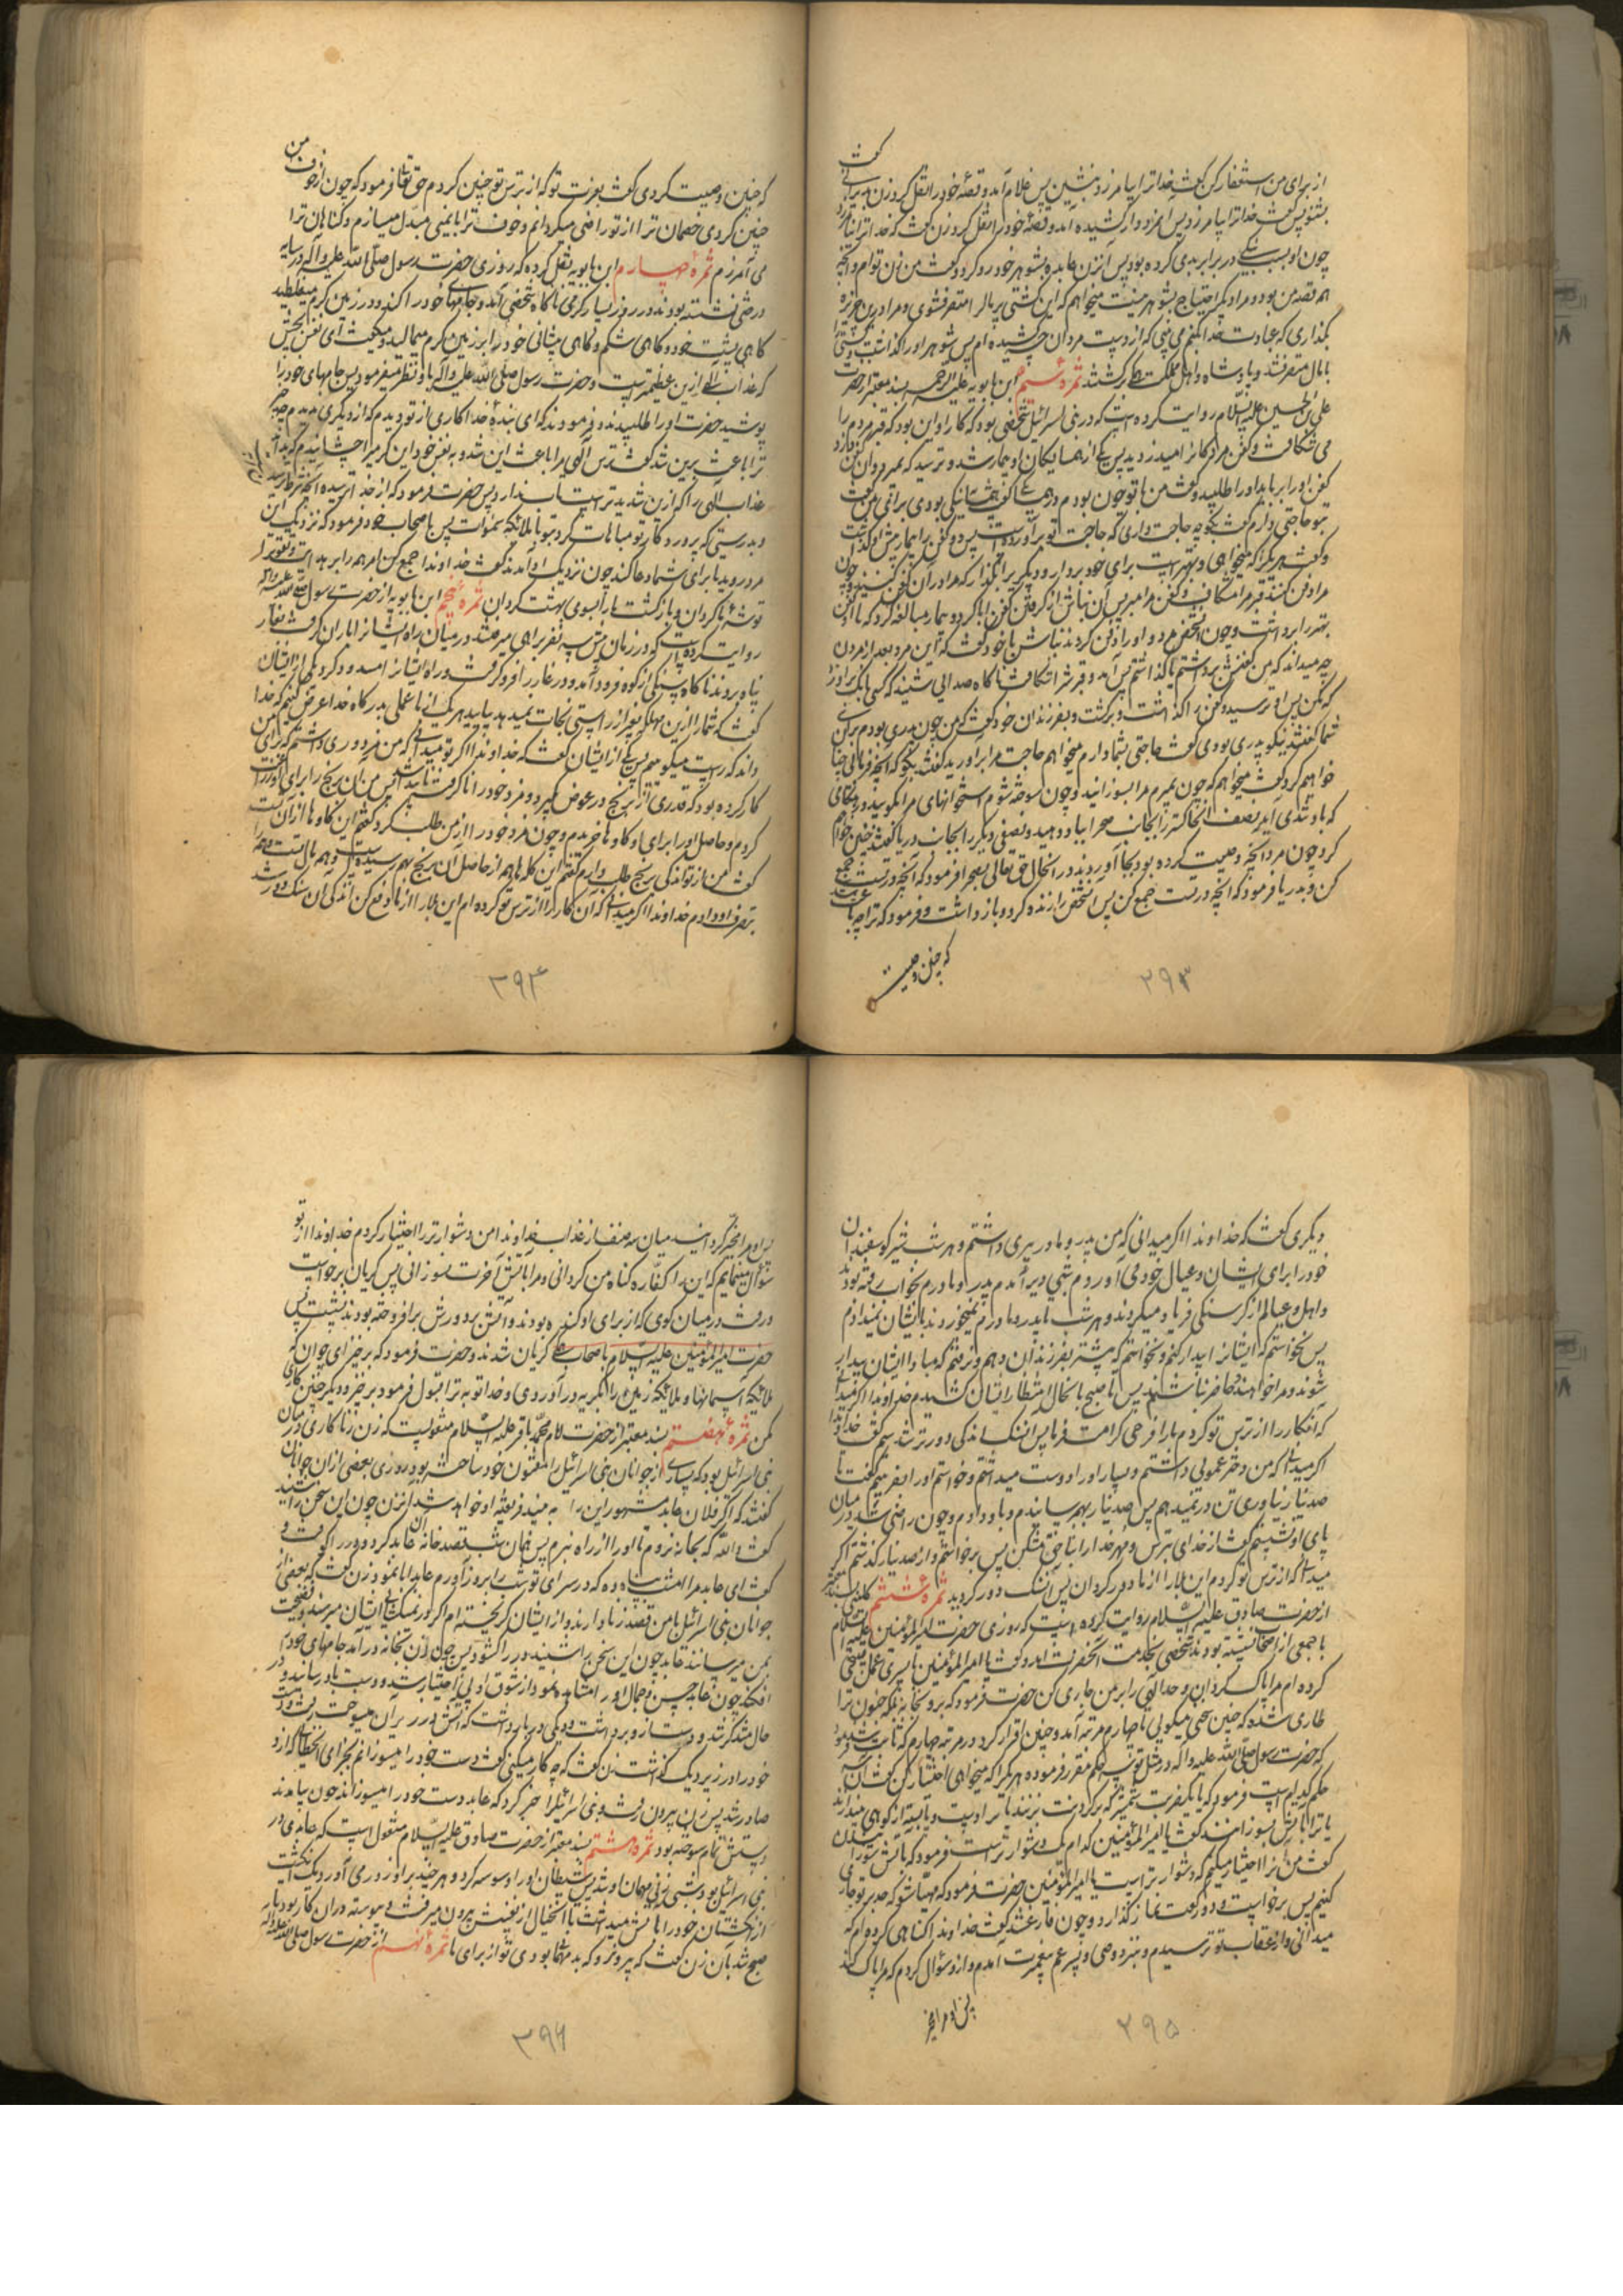 از برای من استغفار کن گفت خدا ترا بیامرزد بنشین پس غلام آمد و قصهٔ خود را نقل کرد زن دیرانی گفت
بشنو پس گفت خدا ترا بیامرزد پس آمد و قصهٔ خود را نقل کرد زن گفت که خدا ترا نیامرزد
چون او بی سبب در برابر بدی کرده بود پس آن زن عابده بشوهر خود رو کرد و گفت من زن توام و آنچه
همه قصه من بود و مرا دیگر احتیاج بشوهر نیست میخواهم که این کشتی پر مال را متصرف شوی و مرا درین جزیره
بگذاری که عبادت خدا بکنم می بینی که از دست مردان چه کشیده ام پس شوهر او را گذاشت و کشتی را
با مال متصرف شد و پادشاه و اهل مملکت برگشتند ثمرهٔ سیم ابن بابویه علیه الرحمه بسند معتبر از حضرت
علی بن الحسین علیه السلام روایت کرده است که در بنی اسرائیل شخصی بود که کار او این بود که قبر مردم را
می شکافت و کفن مردگان را میدزدید پس یکی از همسایگان او بیمار شد و ترسید که بمیرد و آن کفن دزد
کفن او را برباید او را طلبید و گفت من با تو چون بودم در همسایگی گفت همسایه نیکی بودی برای من گفت
بتو حاجتی دارم گفت بگو چه حاجت داری که حاجت تو برآورده است پس دو کفن را بیمار پیش او گذاشت
و گفت هر یک را که میخواهی و بهتر است برای خود بردار و دیگری را بگذار که مرا در آن کفن کنند و چون
مرا دفن کنند قبر مرا مشکاف و کفن مرا مبر پس آن نباش از گرفتن کفن ابا کرد و بیمار مبالغه کرد که تا آن کفن
بهتر را برداشت و چون آن شخص مرد و او را دفن کردند نباش با خود گفت که این مرد بعد از مردن
چه میداند که من کفنش برداشتم یا گذاشتم پس آمد و قبرش را شکافت ناگاه صدائی شنید که کسی بانگ بر او زد
که مکن پس او ترسید و کفن را گذاشت و برگشت و بفرزندان خود گفت که من چون پدری بودم برای
شما گفتند نیکو پدری بودی گفت حاجتی بشما دارم میخواهم حاجت مرا برآورید گفتند بگو که آنچه فرمائی چنان
خواهیم کرد گفت میخواهم که چون بمیرم مرا بسوزانید و چون سوخته شوم استخوانهای مرا بکوبید و در هنگامی
که باد تندی آید نصف آن خاکستر را بجانب صحرا بباد دهید و نصفی دیگر را بجانب دریا گفتند چنین خواهیم
کرد چون مرد آنچه وصیت کرده بود بجا آوردند در آنحال حق تعالی بصحرا فرمود که آنچه در تست جمع
کن و بدریا فرمود که آنچه در تست جمع کن پس آن شخص را زنده کرد و بازداشت و فرمود که ترا چه باعث شد
که چنین وصیت
۲۹۳
که چنین وصیت کردی گفت بعزت تو که از ترس تو چنین کردم حق تعالی فرمود که چون از خوف من
چنین کردی خصمان ترا از تو راضی میگردانم و خوف ترا بایمنی مبدل میسازم و گناهان ترا
می آمرزم ثمرهٔ چهارم ابن بابویه نقل کرده که روزی حضرت رسول صلی الله علیه و آله در سایه
درختی نشسته بودند در روز بسیار گرمی ناگاه شخصی آمد و جامهای خود را کند و در زمین گرم میغلطید
گاهی پشت خود و گاهی شکم و گاهی پیشانی خود را بر زمین گرم میمالید و میگفت ای نفس بچش
که عذاب الهی ازین عظیمتر است و حضرت رسول صلی الله علیه و آله باو نظر میفرمود پس جامهای خود را
پوشید حضرت او را طلبیدند و فرمودند که ای بندهٔ خدا کاری از تو دیدم که از دیگری ندیدم چه چیز
ترا باعث برین شد گفت ترس الهی مرا باعث این شد و به نفس خود این گرمی را چشانیدم که بداند
عذاب الهی را که ازین شدیدتر است تاب ندارد پس حضرت فرمود که از خدا ترسیده آنچه شرط ترسیدن است
و بدرستی که پروردگار تو مباهات کرد بتو با ملائکه سموات پس باصحاب خود فرمود که نزدیک این
مرد روید تا برای شما دعا کند چون نزدیک او آمدند گفت خداوندا جمع کن امر همه را بر هدایت و تقوی را
توشهٔ ما گردان و بازگشت ما را بسوی بهشت گردان ثمرهٔ پنجم ابن بابویه از حضرت رسول صلی الله علیه و آله
روایت کرده است که در زمان پیش سه نفر براهی میرفتند در میان راه ایشان را باران گرفت بغار
پناه بردند ناگاه سنگی از کوه فرود آمد و در غار را فرو گرفت و راه ایشان را مسدود کرد یکی از ایشان
گفت که شما را ازین مهلکه بغیر از راستی نجات نمیدهد بیایید هر یک از ما عملی بدرگاه خدا عرض کنیم که خدا
داند که راست میگوییم پس یکی از ایشان گفت که خداوندا اگر تو میدانی که من مزدوری داشتم که برای من
کار کرده بود که قدری از برنج در عوض بگیرد و مزد خود را نا گرفته ناپیدا شد پس من آن برنج را برای او زراعت
کردم و حاصل او را برای او گاوها خریدم و چون مزد خود را از من طلب کرد گفتم این گاوها از آن تست
گفت من از تو اندکی برنج طلب دارم گفتم این گلها هم از حاصل آن برنج بهم رسیده است و هم مال تست و همه را
بتصرف او دادم خداوندا اگر میدانی که آن کار را از ترس تو کرده ام این بلا را از ما دفع کن اندکی آن سنگ دور شد
۲۹۴
دیگری گفت که خداوندا اگر میدانی که من پدر و مادر پیری داشتم و هر شب شیر گوسفندان
خود را برای ایشان و عیال خود می آوردم شبی دیر آمدم پدر و مادرم بخواب رفته بودند
و اهل و عیالم از گرسنگی فریاد میکردند و هر شب تا پدر و مادرم نمیخوردند بایشان نمیدادم
پس نخواستم که ایشان را بیدار کنم و نخواستم که پیشتر بفرزندان دهم و نرفتم که مبادا ایشان بیدار
شوند و مرا خواهند و حاضر نباشم پس تا صبح با آنحال انتظار ایشان کشیدم خداوندا اگر میدانی
که آنکار را از ترس تو کردم ما را فرجی کرامت فرما پس آن سنگ اندکی دورتر شد سیم گفت خداوندا
اگر میدانی که من دختر عموئی داشتم و بسیار او را دوست میداشتم و خواستم او را بفریبم گفت تا
صد دینار نیاوری تن در نمیدهم پس صد دینار بهم رسانیدم و باو دادم و چون راضی شد و در میان
پای او نشستم گفت از خدای بترس و مهر خدا را بناحق مشکن پس برخواستم و از صد دینار گذشتم اگر
میدانی که از ترس تو کردم این بلا را از ما دور گردان پس آن سنگ دور گردید ثمرهٔ ششم کلینی بسند معتبر
از حضرت صادق علیه السلام روایت کرده است که روزی حضرت امیرالمؤمنین علیه السلام
با جمعی از اصحاب نشسته بودند شخصی بخدمت آنحضرت آمد و گفت یا امیرالمؤمنین با پسری عمل قبیحی
کرده ام مرا پاک گردان و حد الهی را بر من جاری کن حضرت فرمود که برو بخانه که جنون ترا
طاری شده که چنین سخن میگوئی تا چهارم مرتبه آمد و چنین اقرار کرد در مرتبه چهارم که ثابت شد فرمود
که حضرت رسول صلی الله علیه و آله در مثل تو سه حکم مقرر فرموده هر یک را که میخواهی اختیار کن گفت آن سه
حکم کدام است فرمود که یا یک ضربت شمشیر که بر گردنت بزنند یا دست و پا بسته از کوهی بیندازند
یا ترا بآتش بسوزانند گفت یا امیرالمؤمنین کدام یک دشوارتر است فرمود که بآتش سوزانیدن
گفت من آن را اختیار میکنم که دشوارتر است یا امیرالمؤمنین حضرت فرمود که مهیا شو که حد بر تو جاری
کنیم پس برخواست و دو رکعت نماز گذارد و چون فارغ شد گفت خداوندا گناهی کرده ام که
میدانی و از عقاب تو ترسیدم و بنزد وصی و پسر عم پیغمبرت آمدم و ازو سؤال کردم که مرا پاک کند
پس او مرا مخیر
۲۹۵
پس او مرا مخیر گردانید میان سه صنف از عذاب خداوندا من دشوارتر را اختیار کردم خداوندا از تو
سؤال مینمایم که این را کفارهٔ گناه من گردانی و مرا بآتش آخرت نسوزانی پس گریان برخواست
و رفت در میان گوی که از برای او کنده بودند و آتش بر دورش برافروخته بودند نشست پس
حضرت امیرالمؤمنین علیه السلام با صحابه گریان شدند و حضرت فرمود که برخیز ای جوان که
ملائکه آسمانها و ملائکه زمین را بگریه درآوردی و خدا توبه ترا قبول فرمود برخیز و دیگر چنین کاری
مکن ثمرهٔ هفتم بسند معتبر از حضرت امام محمد باقر علیه السلام منقولست که زن زناکاری در میان
بنی اسرائیل بود که بسیاری از جوانان بنی اسرائیل را مفتون خود ساخته بود روزی بعضی از ان جوانان
گفتند که اگر فلان عابد مشهور این را به بیند فریفته او خواهد شد آن زن چون این سخن را شنید
گفت و الله که بخانه نروم تا او را از راه نبرم پس همان شب قصد خانه آن عابد کرد و در را کوفت و
گفت ای عابد مرا امشب پناه ده که در سرای تو شب را بروز آورم عابد ابا نمود زن گفت که بعضی از
جوانان بنی اسرائیل با من قصد زنا دارند و از ایشان گریخته ام اگر در نمیگشایی ایشان میرسند و فضیحت
بمن میرسانند عابد چون این سخن را شنید در را گشود پس چون آن زن بخانه درآمد جامهای خود را
افکند چون عابد حسن و جمال او را مشاهده نمود از شوق او بی اختیار شد و دست باو رسانید و در
حال متذکر شد و دست از و برداشت و دیگی در بار داشت که آتش در زیر آن میسوخت رفت و دست
خود را در زیر دیک گذاشت زن گفت که چه کار میکنی گفت دست خود را میسوزانم بجزای آن خطا که ازو
صادر شد پس زن بیرون رفت و بنی اسرائیل را خبر کرد که عابد دست خود را میسوزاند چون بیامدند
دستش تمام سوخته بود ثمرهٔ هشتم بسند معتبر از حضرت صادق علیه السلام منقول است که عابدی در
بنی اسرائیل بود و شبی زنی مهمان او شد پس شیطان او را وسوسه کرد و هر چند بر او زور می آورد یک انگشت
از انگشتان خود را بآتش میداشت تا آنخیال از نفسش بیرون میرفت و پیوسته در ان کار بود تا
صبح شد بآن زن گفت که بیرون رو که بد مهمانی بودی تو از برای ما ثمرهٔ نهم از حضرت رسول صلی الله علیه و آله
۲۹۶